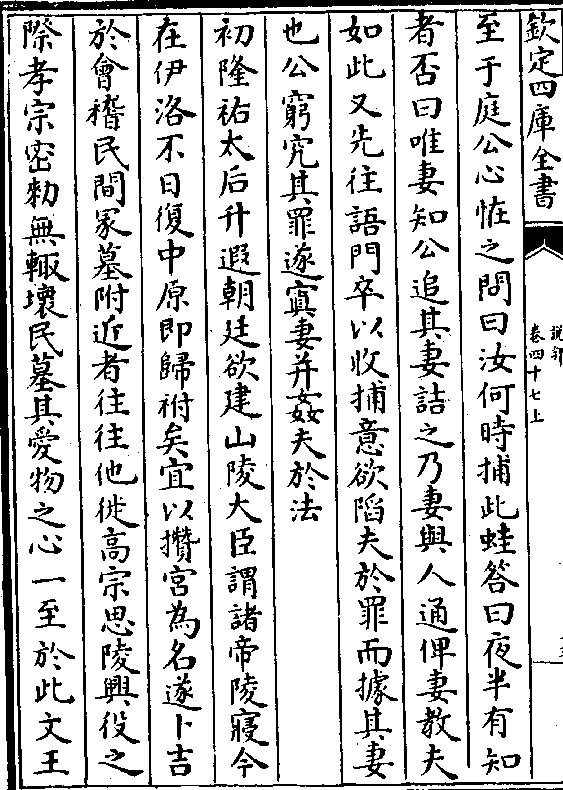 欽定四庫全書
說郛
卷四十七上
至于庭公心恠之問曰汝何時捕此蛙答曰夜半有知
者否曰唯妻知公追其妻詰之乃妻與人通俾妻教夫
如此又先往語門卒以收捕意欲陷夫於罪而據其妻
也公窮究其罪遂寘妻并姦夫於法
初隆祐太后升遐朝廷欲建山陵大臣謂諸帝陵寢今
在伊洛不日復中原即歸祔矣宜以攢宮為名遂卜吉
於會稽民間冢墓附近者往往他徙高宗思陵興役之
際孝宗密勑無輒壞民墓其愛物之心一至於此文王